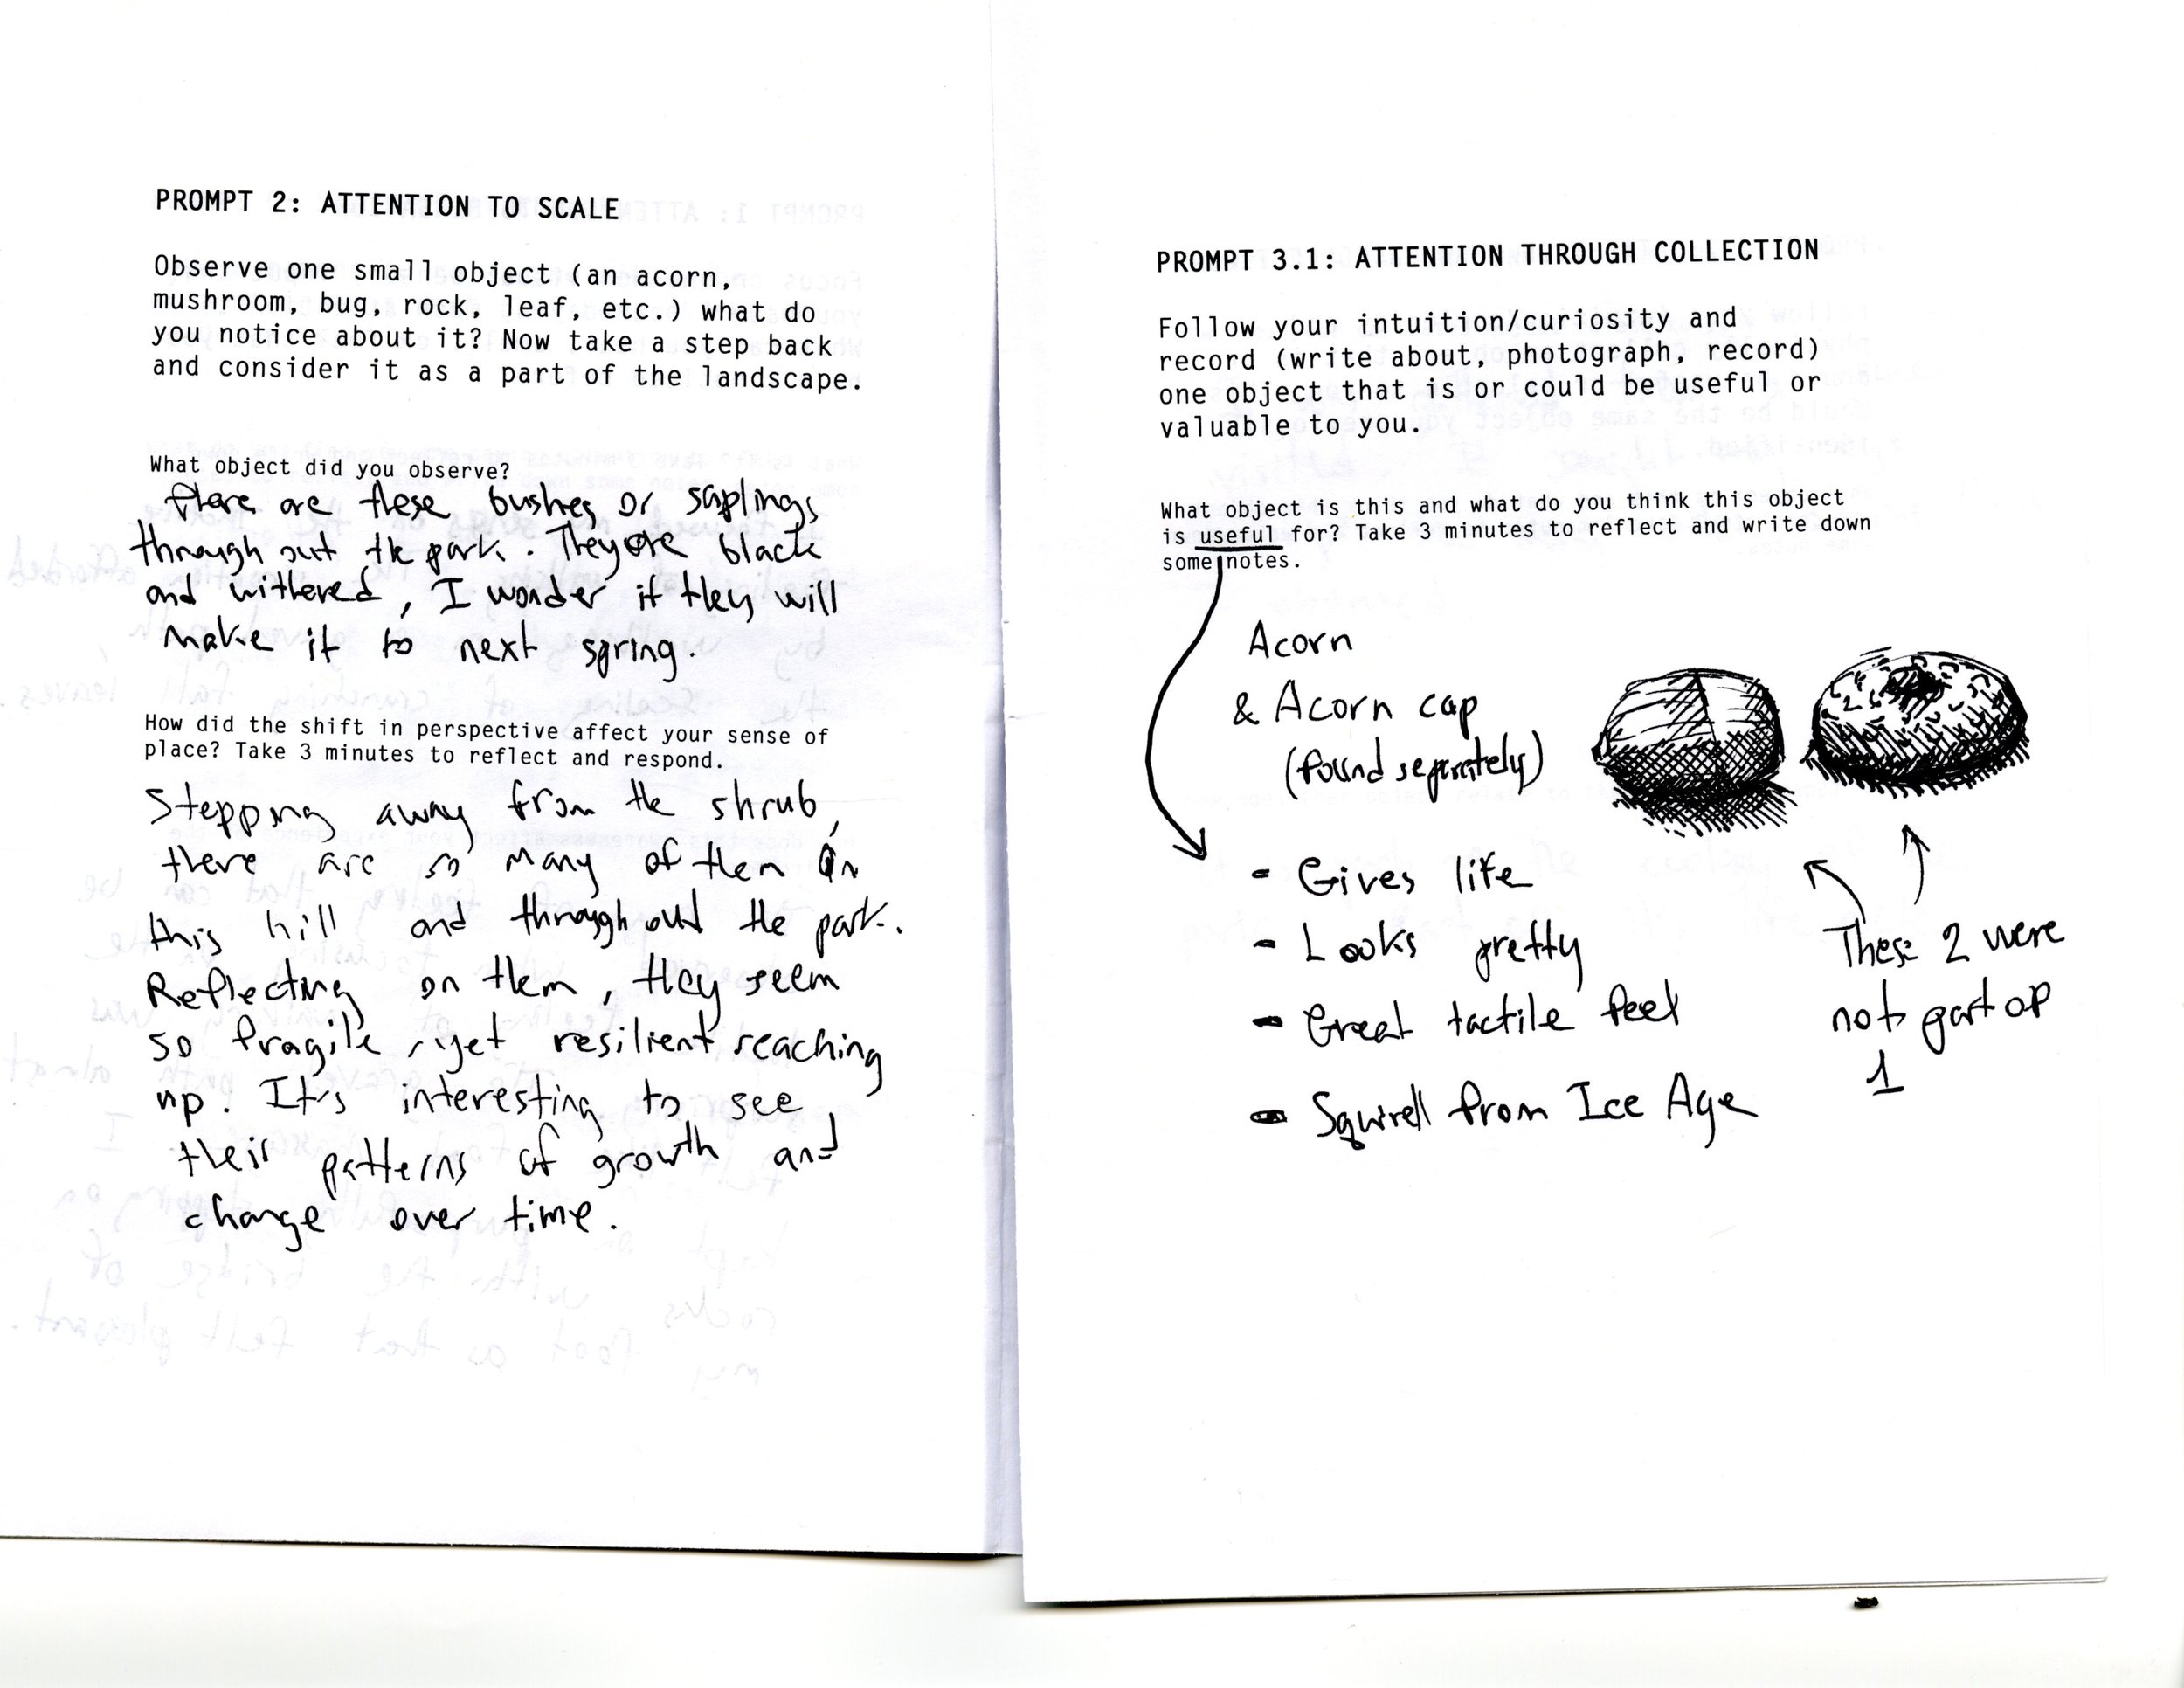 PROMPT 2: ATTENTION TO SCALE
Observe one small object (an acorn,
mushroom, bug, rock, leaf, etc.) what do
you notice about it? Now take a step back
and consider it as a part of the landscape.
What object did you observe?
there are these bushes or saplings
through out the park. They are black
and withered, I wonder if they will
make it to next spring.
How did the shift in perspective affect your sense of
place? Take 3 minutes to reflect and respond.
Stepping away from the shrub,
there are so many of them on
this hill and through out the park.
Reflecting on them, they seem
so fragile, yet resilient reaching
up. It's interesting to see
their patterns of growth and
change over time.
PROMPT 3.1: ATTENTION THROUGH COLLECTION
Follow your intuition/curiosity and
record (write about, photograph, record)
one object that is or could be useful or
valuable to you.
What object is this and what do you think this object
is useful for? Take 3 minutes to reflect and write down
some notes.
Acorn
& Acorn cap
(found separately)
- Gives life
- Looks pretty
- Great tactile feel
- Squirell from Ice Age
These 2 were
not part of
1